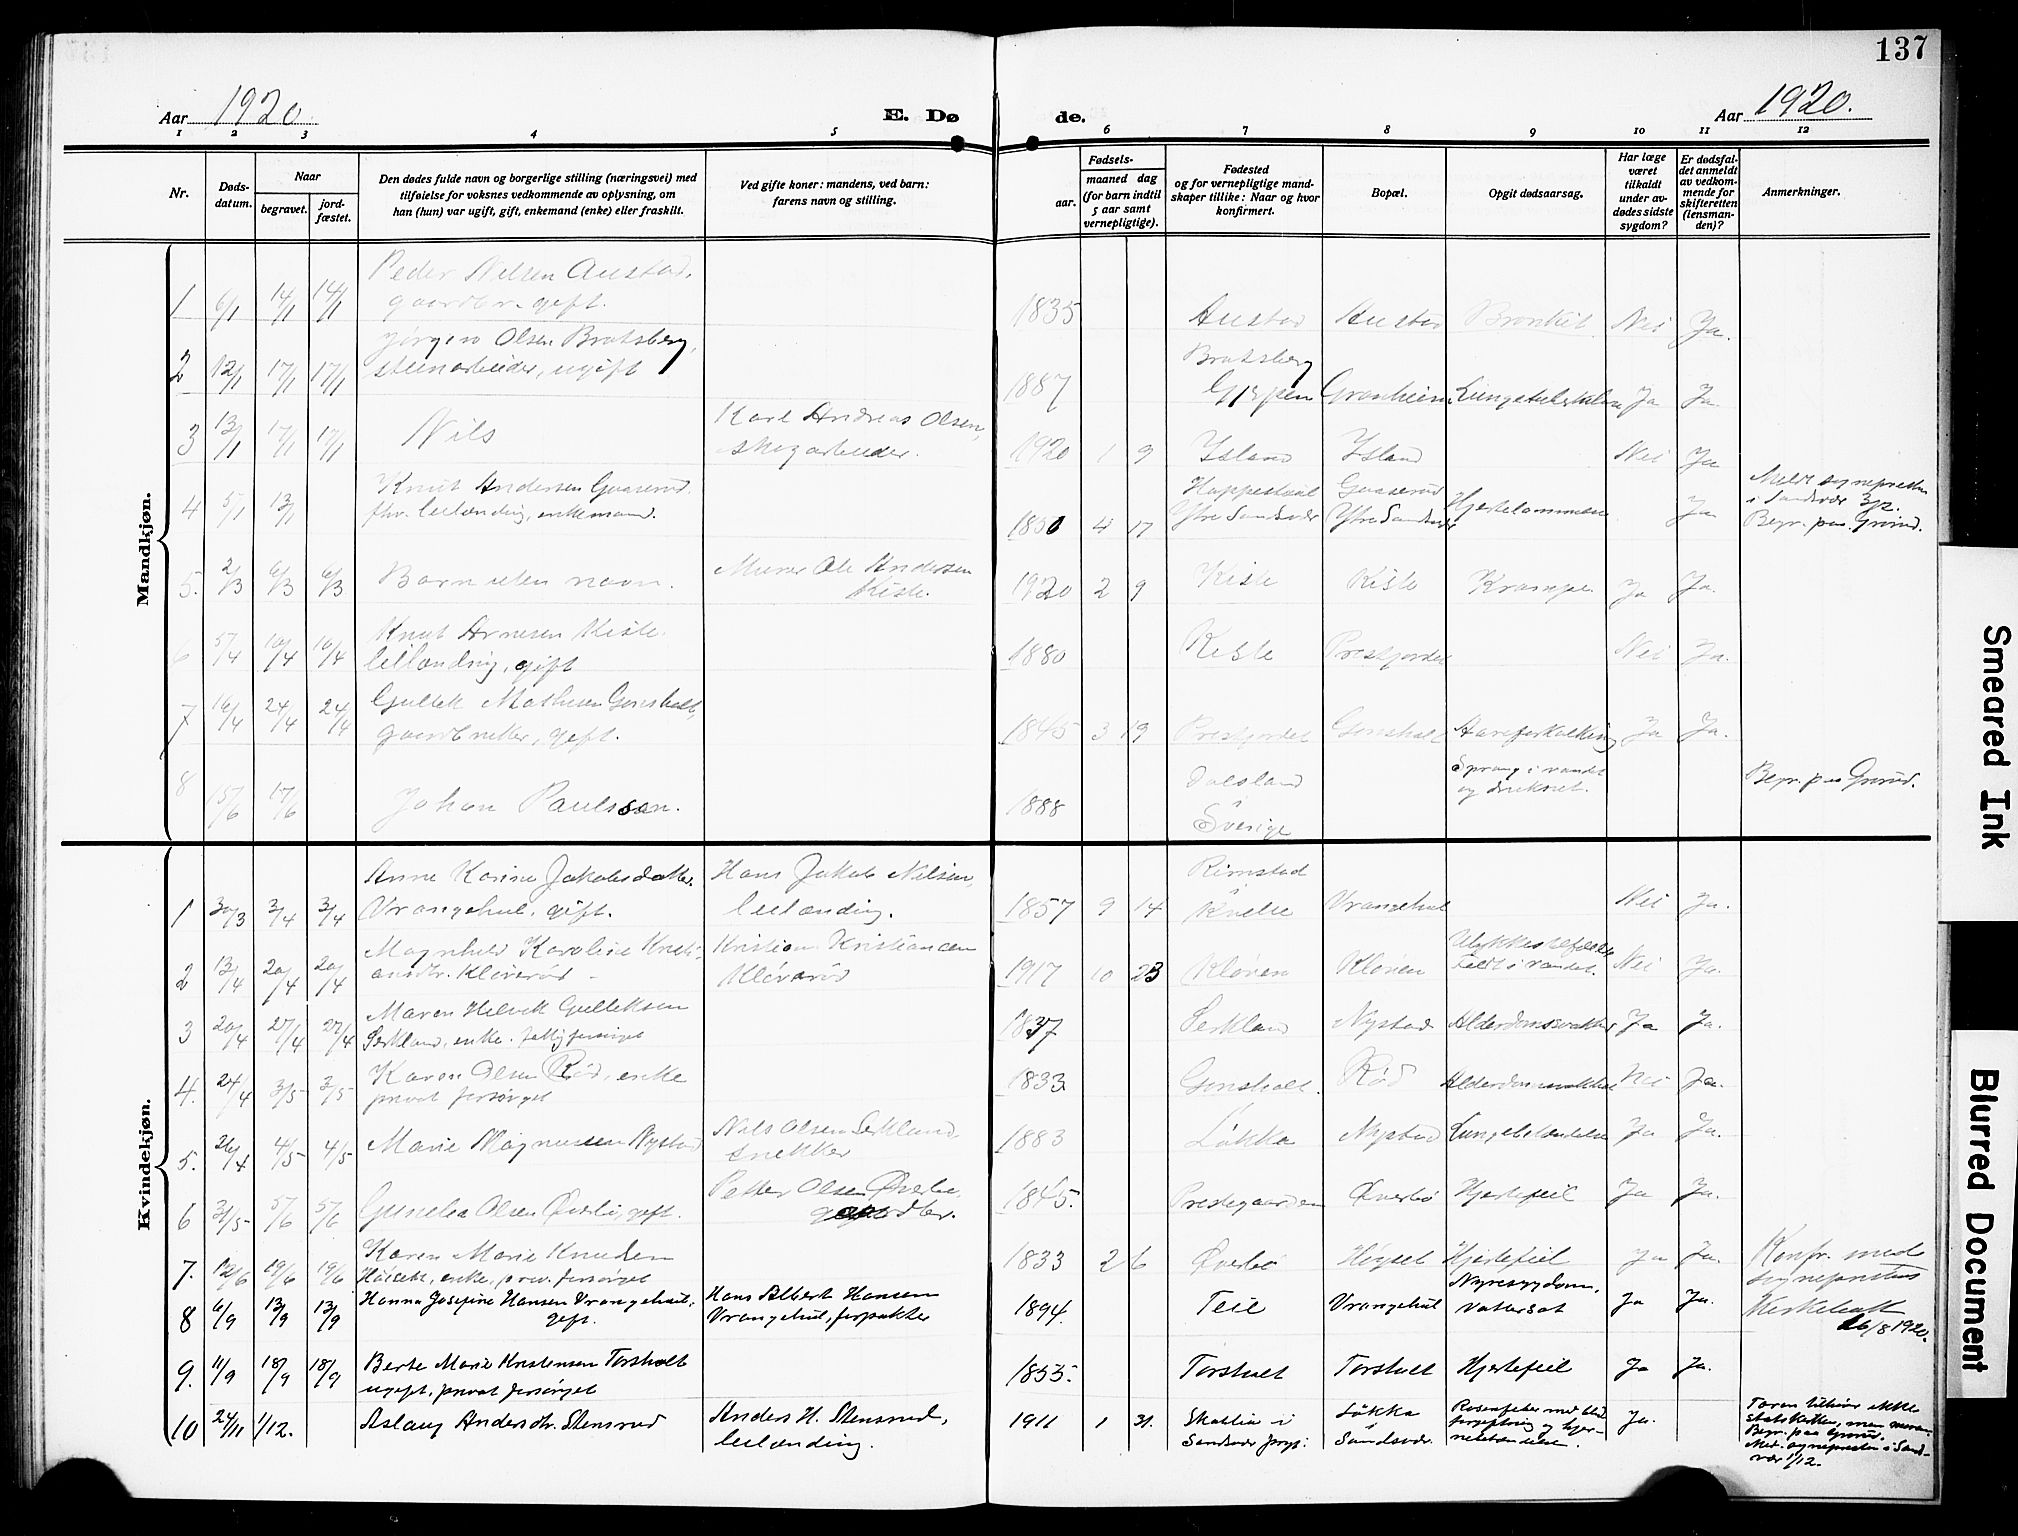 137
Aar 1920.
E. Dø
de.
Aar 1920.
1 2 3 4 5 6 7 8 9 10 11 12
Nr.
Døds-
datum.
Naar
begravet.
jord-
fæstet.
Den dødes fulde navn og borgerlige stilling (næringsvei) med
tilføielse for voksnes vedkommende av oplysning, om
han (hun) var ugift, gift, enkemand (enke) eller fraskilt.
Ved gifte koner: mandens, ved barn:
farens navn og stilling.
Fødsels-
aar.
maaned dag
(for barn indtil
5 aar samt
vernepligtige).
Fødested
og for vernepligtige mand-
skaper tillike: Naar og hvor
konfirmert.
Bopæl.
Opgit dødsaarsag.
Har læge
været
tilkaldt
under av-
dødes sidste
sygdom?
Er dødsfal-
det anmeldt
av vedkom-
mende for
skifteretten
(lensman-
den)?
Anmerkninger.
Mandkjøn.
1 6/1 14/1 14/1 Peder Nilsen Austad,
gaardbr. gift. 1835 Austad Austad Bronkit Nei Ja.
2 12/1 17/1 17/1 Jørgen Olsen Bratsberg,
stenarbeider, ugift 1887 Bratsberg
Gjerpen Granheim Lungetuberkulose Ja Ja.
3 13/1 17/1 17/1 Nils Karl Andreas Olsen,
skogarbeider. 1920 1 9 Island Island Nei Ja
4 5/1 13/1 Knut Andersen Gaaserud.
fhv. leilænding, enkemand. 1850 4 17 Ytre Sandsvær Gaaserud
Ytre Sandsvær Hjertelammelse Ja Meldt sognepresten
i Sandsvær
Begr. paa Grorud.
5. 2/3 6/3 6/3 Barn uten navn. Murer Ole Andersen
Kisle. 1920 2 9 Kisle Kisle Krampe Ja Ja.
6 5/4 10/4 10/4 Knut Arnesen Kisle.
leilænding, gift 1880 Kisle Prestjordet Nei Ja.
7 16/4 24/4 24/4 Gullek Mathisen Gonsholt,
gaardbruker, gift. 1845 3 19 Prestjordet Gonsholt Aareforkalkning Ja Ja.
8 15/6 17/6 Johan Paulsson. 1888 Dalsland
Sverige Sprang i vandet
og druknet. Begr. paa Grorud.
Kvindekjøn.
1 30/3 3/4 3/4 Anne Karine Jakobsdatter
Vrangehul, gift. Hans Jakob Nilsen,
leilænding. 1857 9 14 Rimstad
Vrangehul Nei Ja.
2 13/4 20/4 20/4 Magnhild Karoline Kristi-
ansdtr. Kløverød Kristian Kristiansen
Kløverød 1917 10 23 Kløven Kløven Ulykkestilfælde
Faldt i vandet. Nei Ja.
3 20/4 27/4 27/4 Maren Helvik Gulleksen
Serkland, enke. fattigforsørget 1837 Serkland Nystad Alderdomssvakhet Ja Ja.
4. 24/4 3/5 3/5 Karen Olsen Rød, enke
privat forsørget 1833 Gonsholt. Rød Alderdomssvakhet Nei Ja.
5. 26/4 4/5 4/5 Marie Magnussen Nystad Nils Olsen Serkland
snekker 1883 Løkka Nystad Lungebetændelse Ja Ja.
6 31/5 5/6 5/6 Gunelia Olsen Øverbø, gift. Petter Olsen Øverbø,
gaardbr. 1845. Prestegaarden Øverbø Hjertefeil Ja Ja.
7. 12/6 19/6 19/6 Karen Marie Knudsen
Høiset, enke, priv. forsørget 1833 2 6 Øverbø Høyset Hjertefeil Ja Ja. Konfr. med
sogneprestens
Kirkebok
26/8 1920.
8 6/9 13/9 13/9 Hanna Josefine Hansen Vrangehul,
gift. Hans Albert Hansen
Vrangehul, forpakter 1894. Teie Vrangehul Nyresygdom,
Vatersot Ja Ja.
9. 11/9 18/9 18/9 Berte Marie Kristensen Torsholt
ugift, privat forsørget 1855. Torsholt Torsholt Hjertefeil Ja Ja.
10 24/11 1/12. Aslaug Andersdtr. Stensrud Anders H. Stensrud,
leilænding. 1911 1 31. Skollia i
Sandsvær prgj. Løkka
Sandsvær. Rosenfeber med blod
forgiftning og hjer-
nebetændelse. Ja. Faren tilhører ikke
statskirken, men
Begr. paa Grorud.
Med. sognepresten i Sand-
vær 1/12.
Smeared Ink
Blurred Document